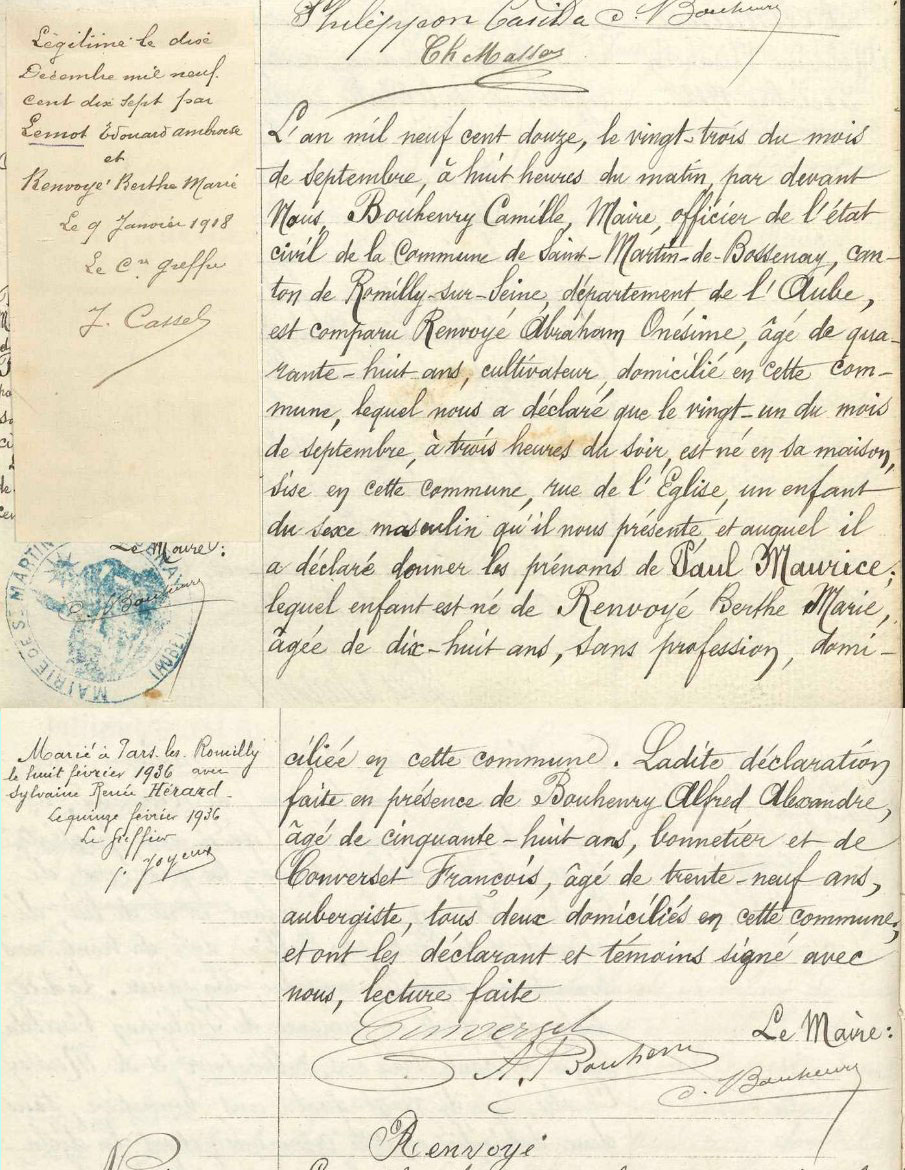 Philippon Casilda C. Bouhenry
Ch Masson
Légitimé le dix
Décembre mil neuf
cent dix sept par
Lemot Édouard ambroise
et
Renvoyé Berthe Marie
Le 9 Janvier 1918
Le Cis greffier
J. Cassel
L'an mil neuf cent douze, le vingt-trois du mois
de septembre, à huit heures du matin, par devant
Nous, Bouhenry Camille, Maire, officier de l'état
civil de la Commune de Saint-Martin-de-Bossenay, can-
ton de Romilly-sur-Seine, département de l'Aube,
est comparu Renvoyé Abraham Onésime, âgé de qua-
rante-huit ans, cultivateur, domicilié en cette com-
mune, lequel nous a déclaré que le vingt-un du mois
de septembre, à trois heures du soir, est né en sa maison,
sise en cette commune, rue de l'Eglise, un enfant
du sexe masculin qu'il nous présente, et auquel il
a déclaré donner les prénoms de Paul Maurice;
lequel enfant est né de Renvoyé Berthe Marie,
âgée de dix-huit ans, sans profession, domi-
Le Maire:
C. Bouhenry
MAIRIE DE ST MARTIN (AUBE)
Marié à Pars-les-Romilly
le huit février 1936 avec
Sylvaine Renée Hérard
Le quinze février 1936
Le Greffier
J. Joyeux
ciliée en cette commune. Ladite déclaration
faite en présence de Bouhenry Alfred Alexandre,
âgé de cinquante-huit ans, bonnetier et de
Converset François, âgé de trente-neuf ans,
aubergiste, tous deux domiciliés en cette commune;
et ont les déclarant et témoins signé avec
nous, lecture faite
Converset
Le Maire:
A. Bouhenry
C. Bouhenry
Renvoyé